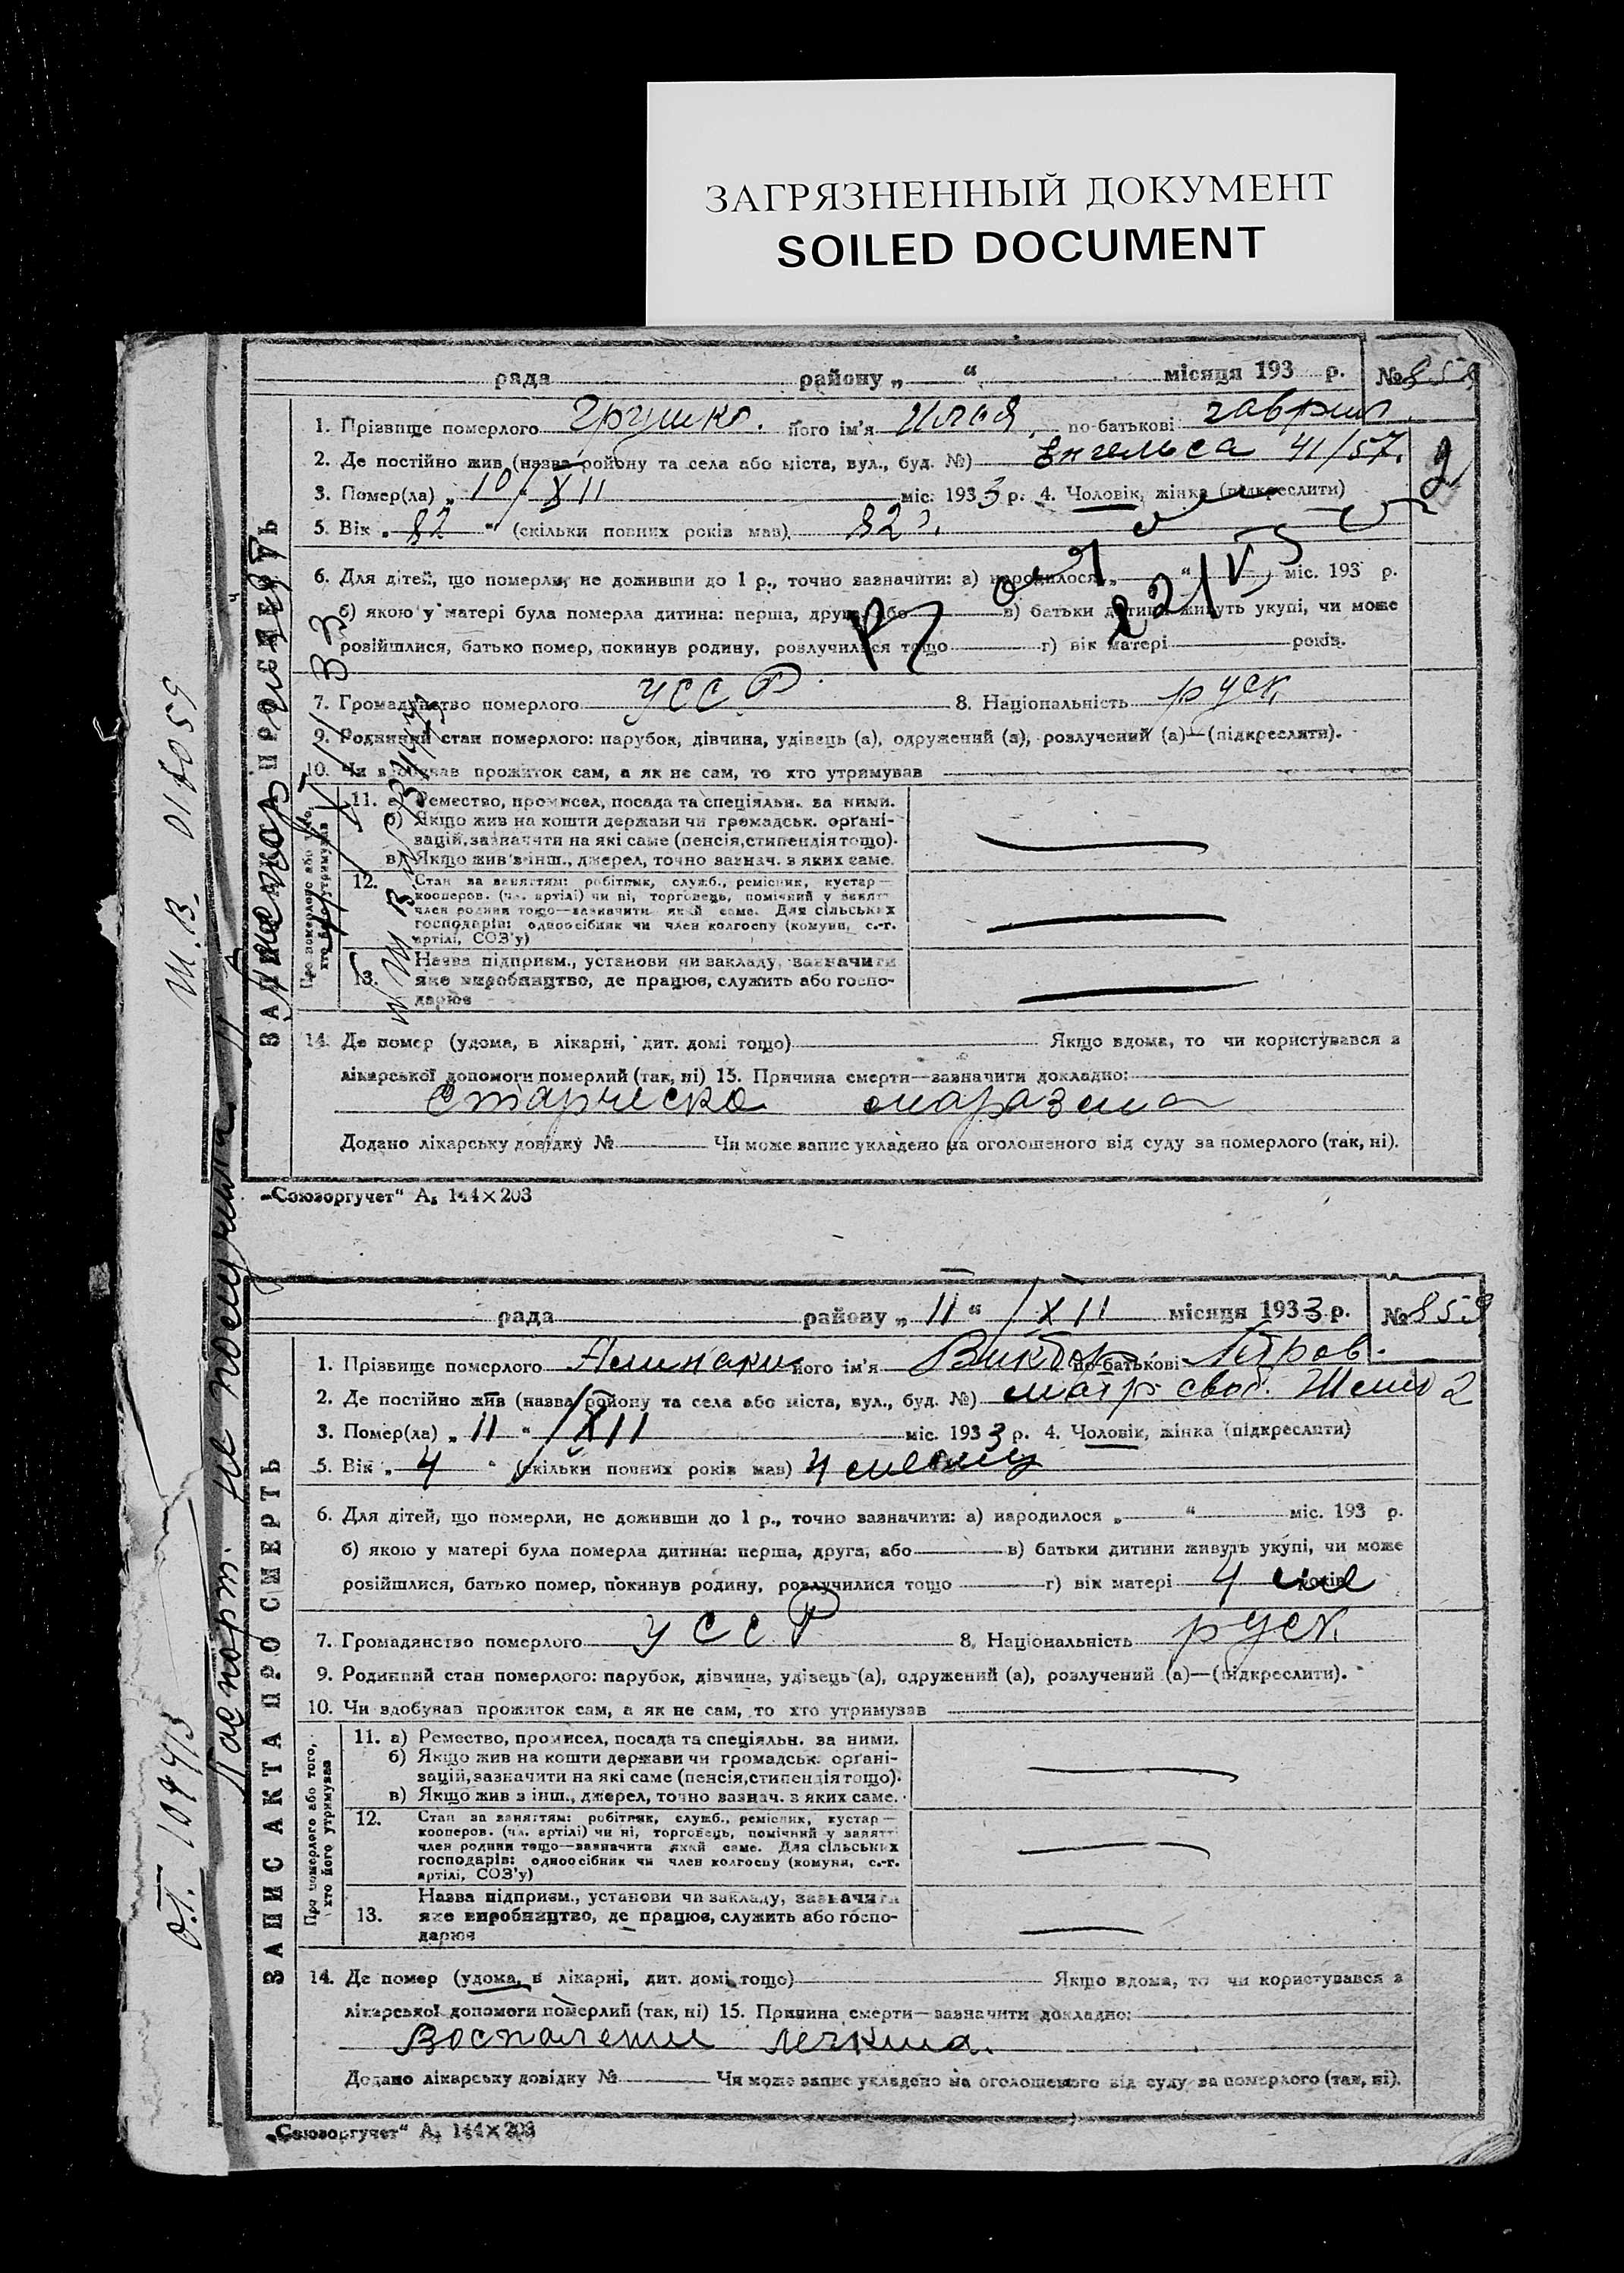 ЗАГРЯЗНЕННЫЙ ДОКУМЕНТ
SOILED DOCUMENT
рада района „ “ місяця 193 р. №
1. Прізвище померлого його ім'я Илья по батькові Гаврил.
2. Де постійно жив (назва району та села або міста, вул., буд. №) Енгельса 41/57.
2
3. Помер(ла) „ 10/XII міс. 1933 р. 4. Чоловік, жінка (підкреслити)
5. Вік „ 82 “ (скільки повних років мав) 82 г.
6. Для дітей, що померли, не доживши до 1 р., точно зазначити: а) народилося „ “ міс. 193 р.
б) якою у матері була померла дитина: перша, друга, або в) батьки дитини живуть укупі, чи може
розійшлися, батько помер, покинув родину, розлучилися тощо г) вік матері років.
7. Громадянство померлого УССР 8. Національність руск.
9. Родинний стан померлого: парубок, дівчина, удівець (а), одружений (а), розлучений (а)—(підкреслити).
10. Чи здобував прожиток сам, а як не сам, то хто утримував
11. а) Ремество, промисел, посада та спеціяльн. за ними.
б) Якщо жив на кошти держави чи громадськ. органі-
зацій, зазначити на які саме (пенсія, стипендія тощо).
в) Якщо жив з інш., джерел, точно зазнач. з яких саме.
12. Стан за заняттям: робітник, служб., ремісник, кустар—
кооперов. (чл. артілі) чи ні, торговець, помічний у занятт
член родини тощо—зазначити який саме. Для сільських
господарів: одноосібник чи член колгоспу (комуни, с.-г.
артілі, СОЗ'у)
Назва підприєм., установи чи закладу, зазначити
13. яке виробництво, де працює, служить або госпо-
дарює
14. Де помер (удома, в лікарні, дит. домі тощо) Якщо вдома, то чи користувався з
лікарської допомоги померлий (так, ні) 15. Причина смерти—зазначити докладно:
Додано лікарську довідку № Чи може запис укладено на оголошеного від суду за померлого (так, ні).
„Союзоргучет“ А₅ 144×203
Паспорт. не получили
рада району „ 11 “ /XII місяця 1933 р. № 859
1. Прізвище померлого його ім'я Виктор по батькові Петров.
2. Де постійно жив (назва району та села або міста, вул., буд. №) 2
3. Помер(ла) „ 11 “ /XII міс. 1933 р. 4. Чоловік, жінка (підкреслити)
5. Вік „ 4 “ (скільки повних років мав) 4
6. Для дітей, що померли, не доживши до 1 р., точно зазначити: а) народилося „ “ міс. 193 р.
б) якою у матері була померла дитина: перша, друга, або в) батьки дитини живуть укупі, чи може
розійшлися, батько помер, покинув родину, розлучилися тощо г) вік матері 4
7. Громадянство померлого УССР 8. Національність руск.
9. Родинний стан померлого: парубок, дівчина, удівець (а), одружений (а), розлучений (а)—(підкреслити).
10. Чи здобував прожиток сам, а як не сам, то хто утримував
ЗАПИС АКТА ПРО СМЕРТЬ
Про померлого або того,
хто його утримував
11. а) Ремество, промисел, посада та спеціяльн. за ними.
б) Якщо жив на кошти держави чи громадськ. органі-
зацій, зазначити на які саме (пенсія, стипендія тощо).
в) Якщо жив з інш., джерел, точно зазнач. з яких саме.
12. Стан за заняттям: робітник, служб., ремісник, кустар—
кооперов. (чл. артілі) чи ні, торговець, помічний у занятті
член родини тощо—зазначити який саме. Для сільських
господарів: одноосібник чи член колгоспу (комуни, с.-г.
артілі, СОЗ'у)
Назва підприєм., установи чи закладу, зазначити
13. яке виробництво, де працює, служить або госпо-
дарює
14. Де помер (удома, в лікарні, дит. домі тощо) Якщо вдома, то чи користувався з
лікарської допомоги померлий (так, ні) 15. Причина смерти—зазначити докладно:
Воспаление легких.
Додано лікарську довідку № Чи може запис укладено на оголошеного від суду за померлого (так, ні).
„Союзоргучет“ А₅ 144×203